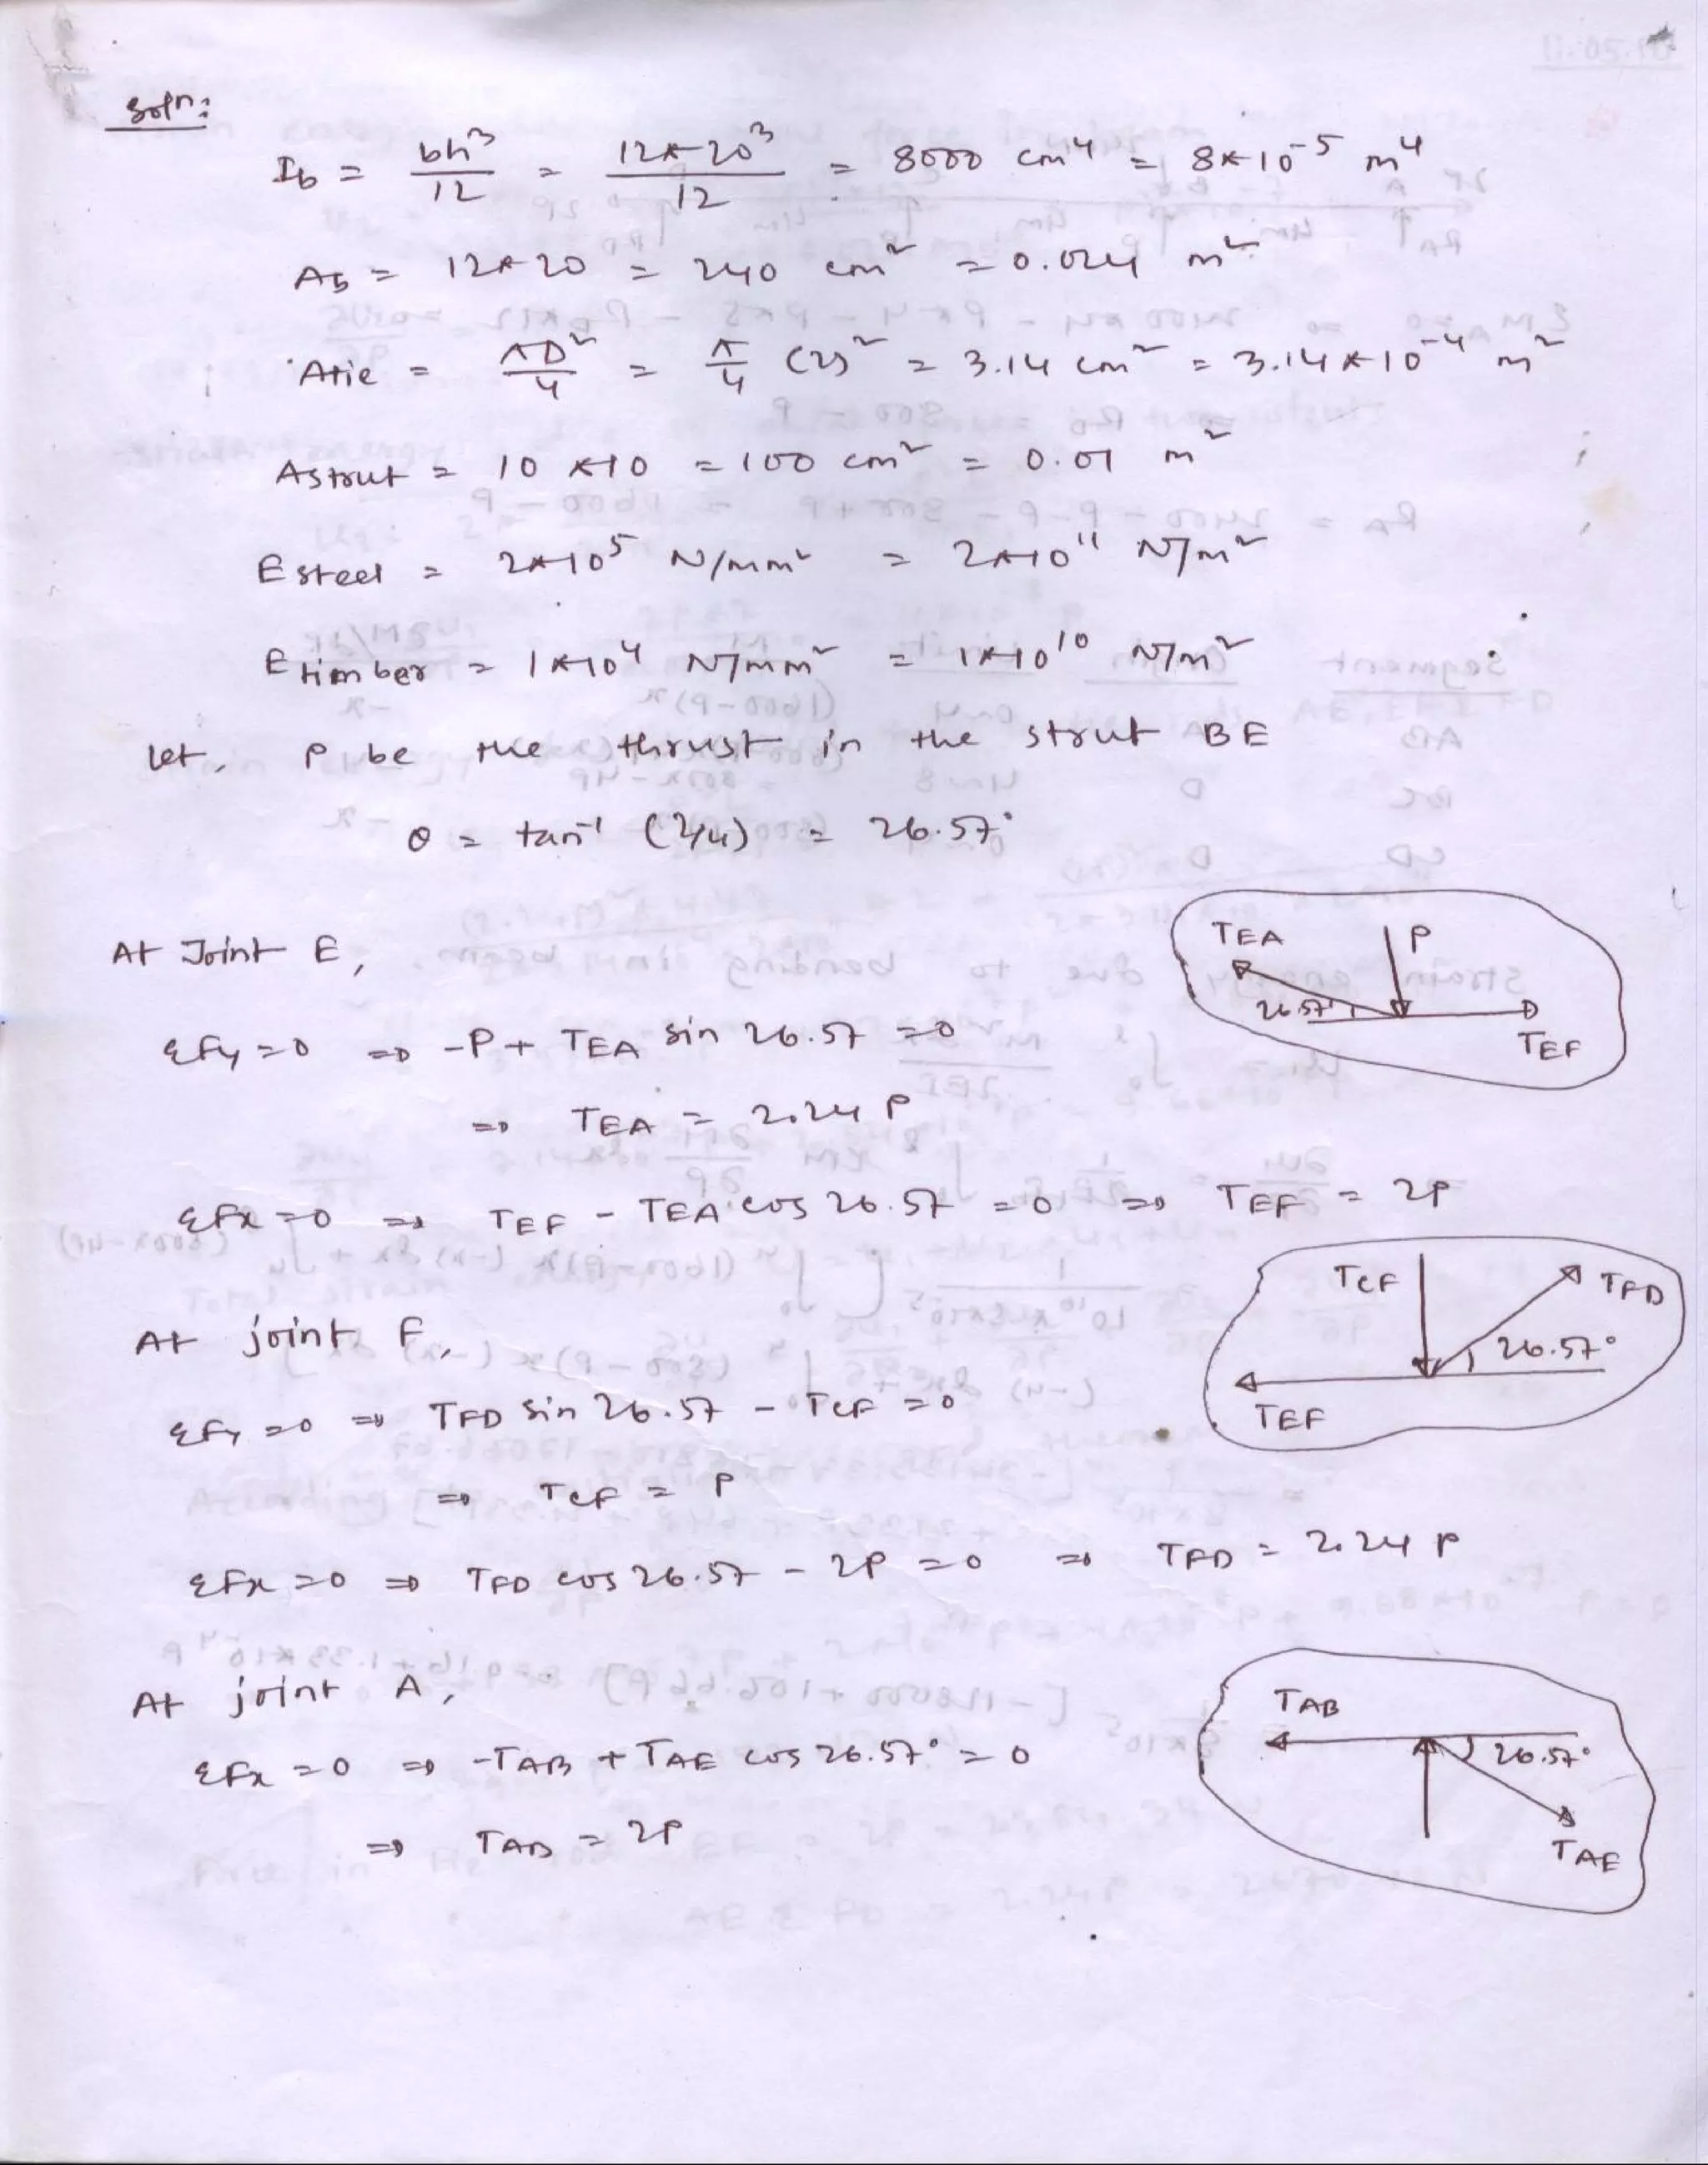 Soln:
I_b = bh³/12 = 12×20³/12 = 8000 cm⁴ = 8×10⁻⁵ m⁴
A_b = 12×20 = 240 cm² = 0.024 m²
A_tie = πD²/4 = π/4 (2)² = 3.14 cm² = 3.14×10⁻⁴ m²
A_strut = 10×10 = 100 cm² = 0.01 m²
E_steel = 2×10⁵ N/mm² = 2×10¹¹ N/m²
E_timber = 1×10⁴ N/mm² = 1×10¹⁰ N/m²
Let, P be the thrust in the strut BE
θ = tan⁻¹ (2/4) = 26.57°
At Joint E,
T_EA P
26.57°
T_EF
ΣFy = 0 ⇒ -P + T_EA sin 26.57 = 0
⇒ T_EA = 2.24 P
ΣFx = 0 ⇒ T_EF - T_EA cos 26.57 = 0 ⇒ T_EF = 2P
At joint F,
T_CF T_FD
26.57°
T_EF
ΣFy = 0 ⇒ T_FD sin 26.57 - T_CF = 0
⇒ T_CF = P
ΣFx = 0 ⇒ T_FD cos 26.57 - 2P = 0 ⇒ T_FD = 2.24 P
At joint A,
T_AB
26.57°
T_AE
ΣFx = 0 ⇒ -T_AB + T_AE cos 26.57° = 0
⇒ T_AB = 2P